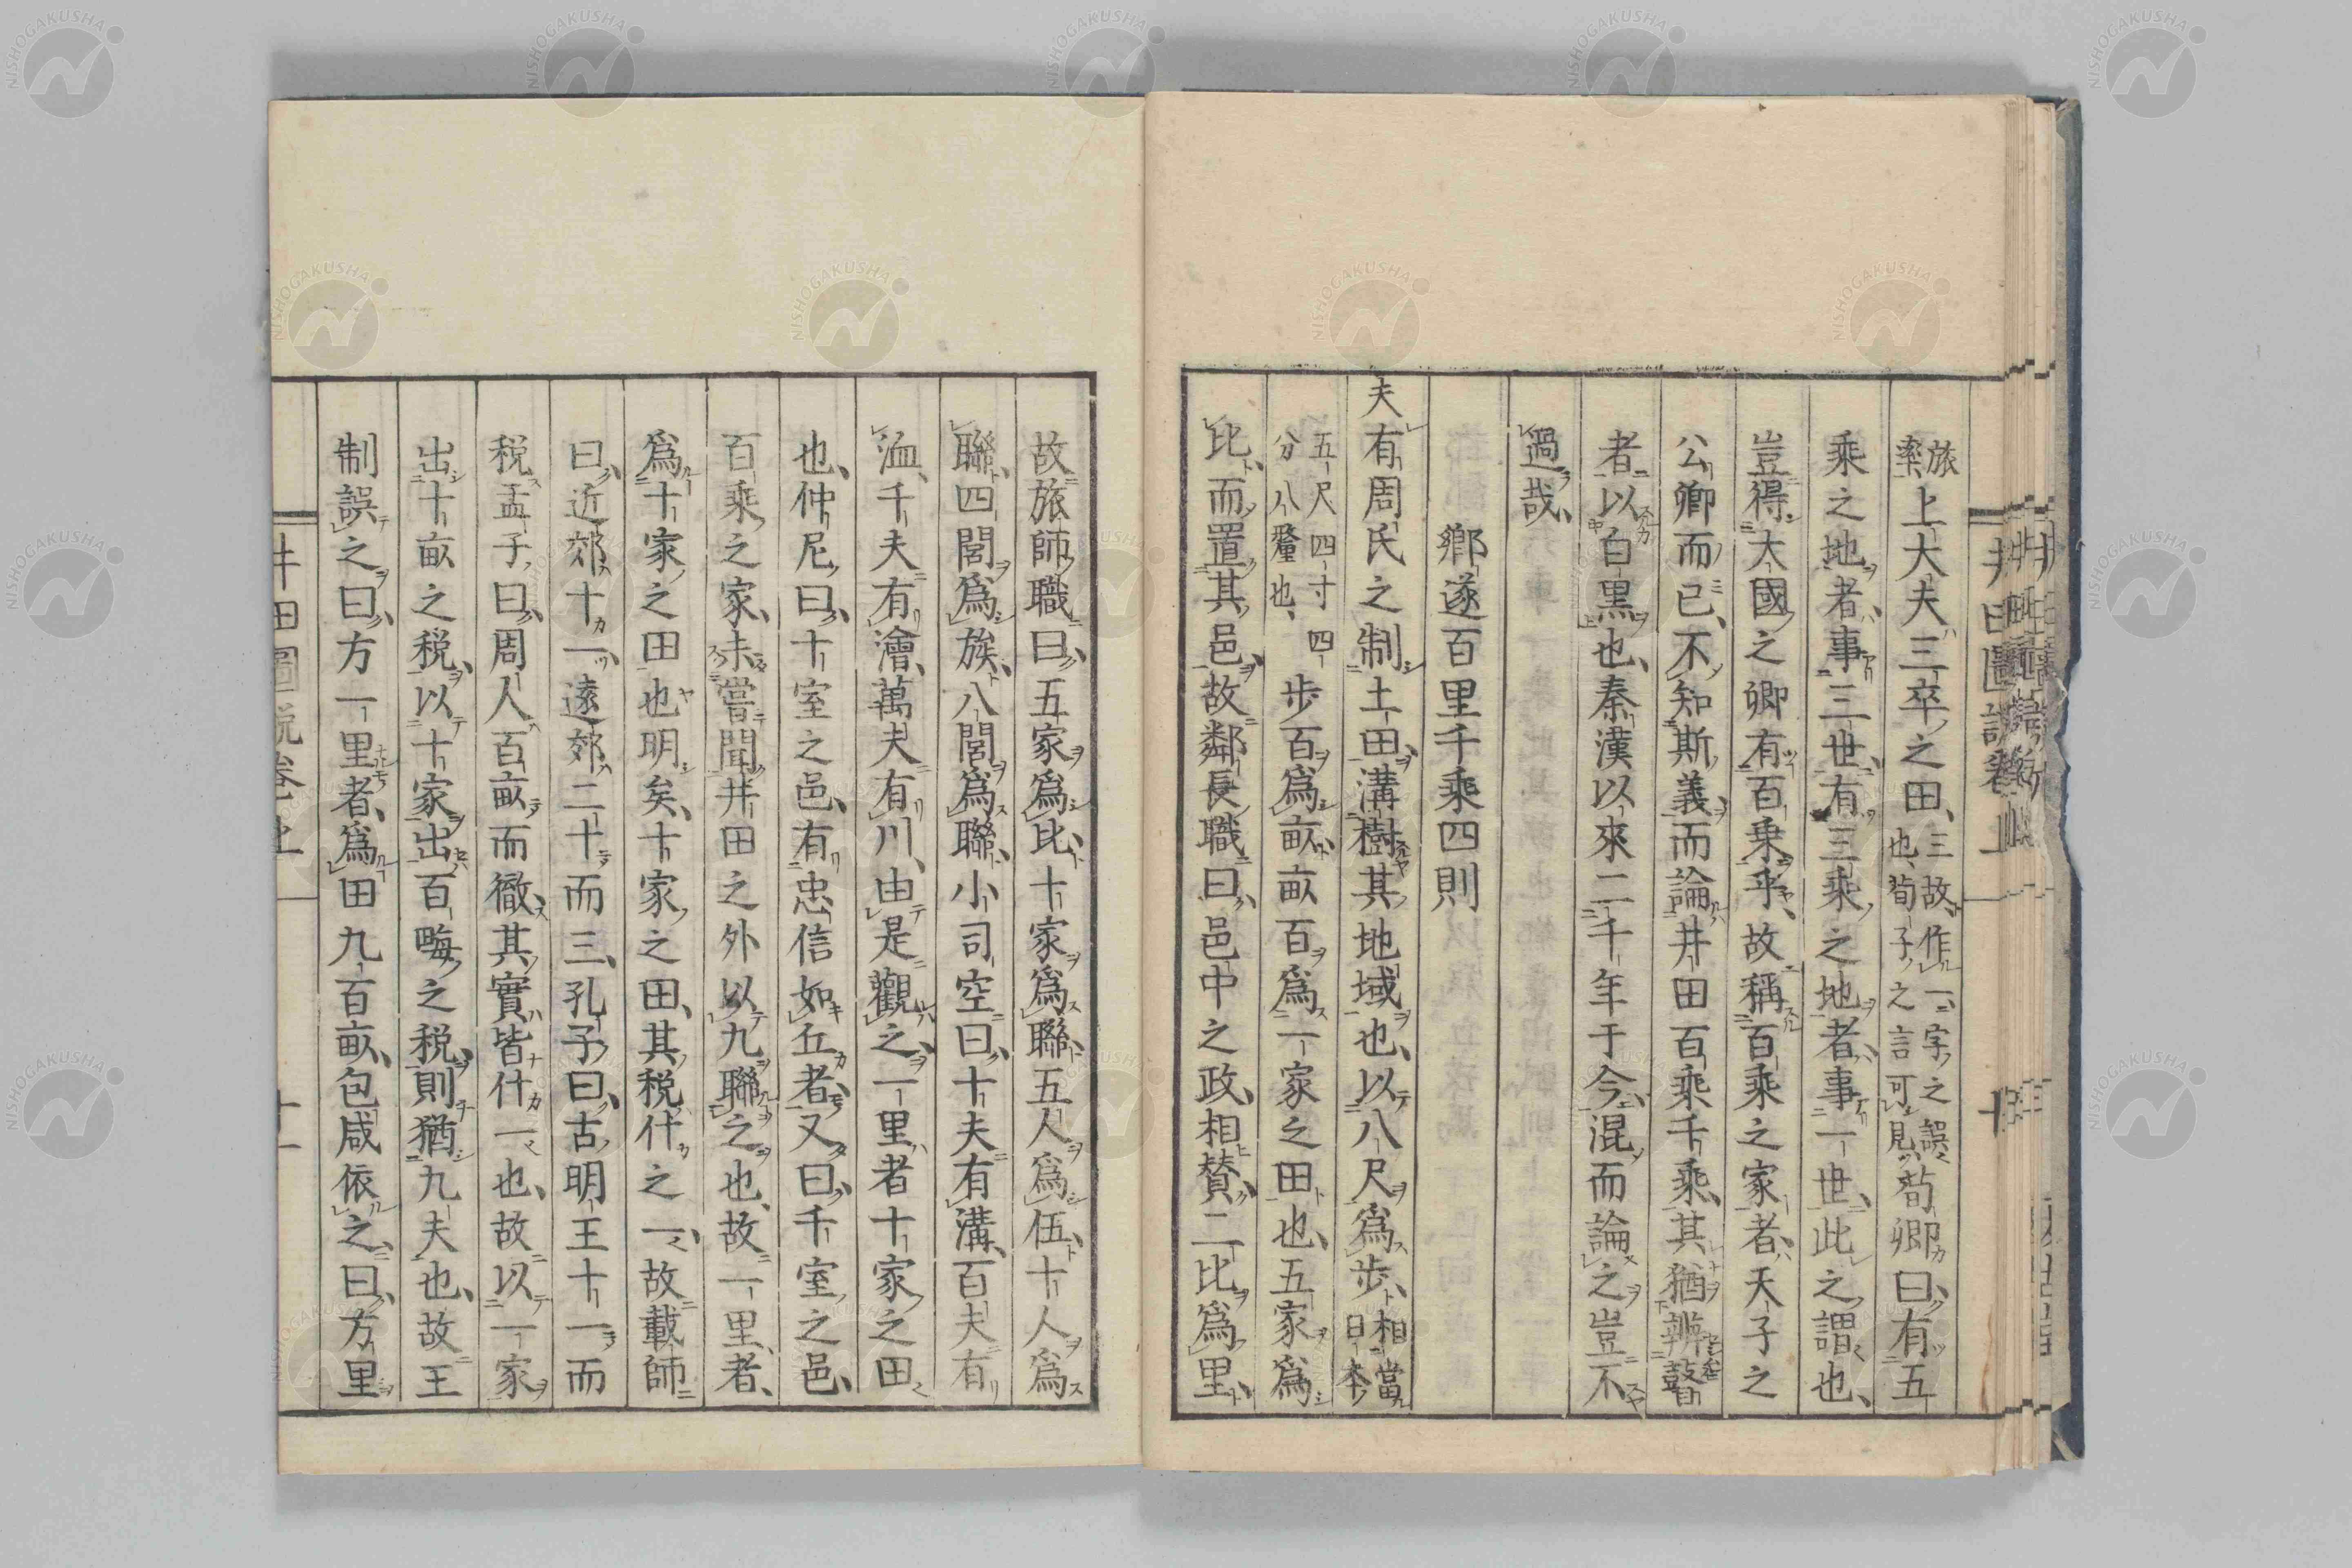 旅率上大夫三卒之田、三故、作一字之誤也、荀子之言可見、荀卿曰、有五
乘之地者、事三世、有三乘之地者、事一世、此之謂也、
豈得大國之卿有百乘乎、故稱百乘之家者、天子之
公卿而已、不知斯義、而論井田百乘千乘、其猶辨瞽
者以白黑也、秦漢以來二千年于今、混而論之、豈不
過哉、
鄉遂百里千乘四則
夫有周氏之制土田、溝樹其地域也、以八尺爲步、相當日本
五尺四寸四分八釐也、步百爲畝、畝百爲一家之田也、五家爲
比、而置其邑、故鄰長職曰、邑中之政、相贊、二比爲里、
故旅師職曰、五家爲比、十家爲聯、五人爲伍、十人爲
聯、四閭爲族、八閭爲聯、小司空曰、十夫有溝、百夫有
洫、千夫有澮、萬夫有川、由是觀之、一里者十家之田
也、仲尼曰、十室之邑、有忠信如丘者、又曰、千室之邑、
百乘之家、未嘗聞井田之外以九聯之也、故一里者、
爲十家之田也明矣、十家之田、其税什之一、故載師
曰、近郊十一、遠郊二十而三、孔子曰、古明王十一而
税、孟子曰、周人百畝而徹、其實皆什一也、故以一家
出十畝之税、以十家出百畮之税、則猶九夫也、故王
制誤之曰、方一里者、爲田九百畝、包咸依之、曰、方里
井田圖説卷上
十一
NISHOGAKUSHA